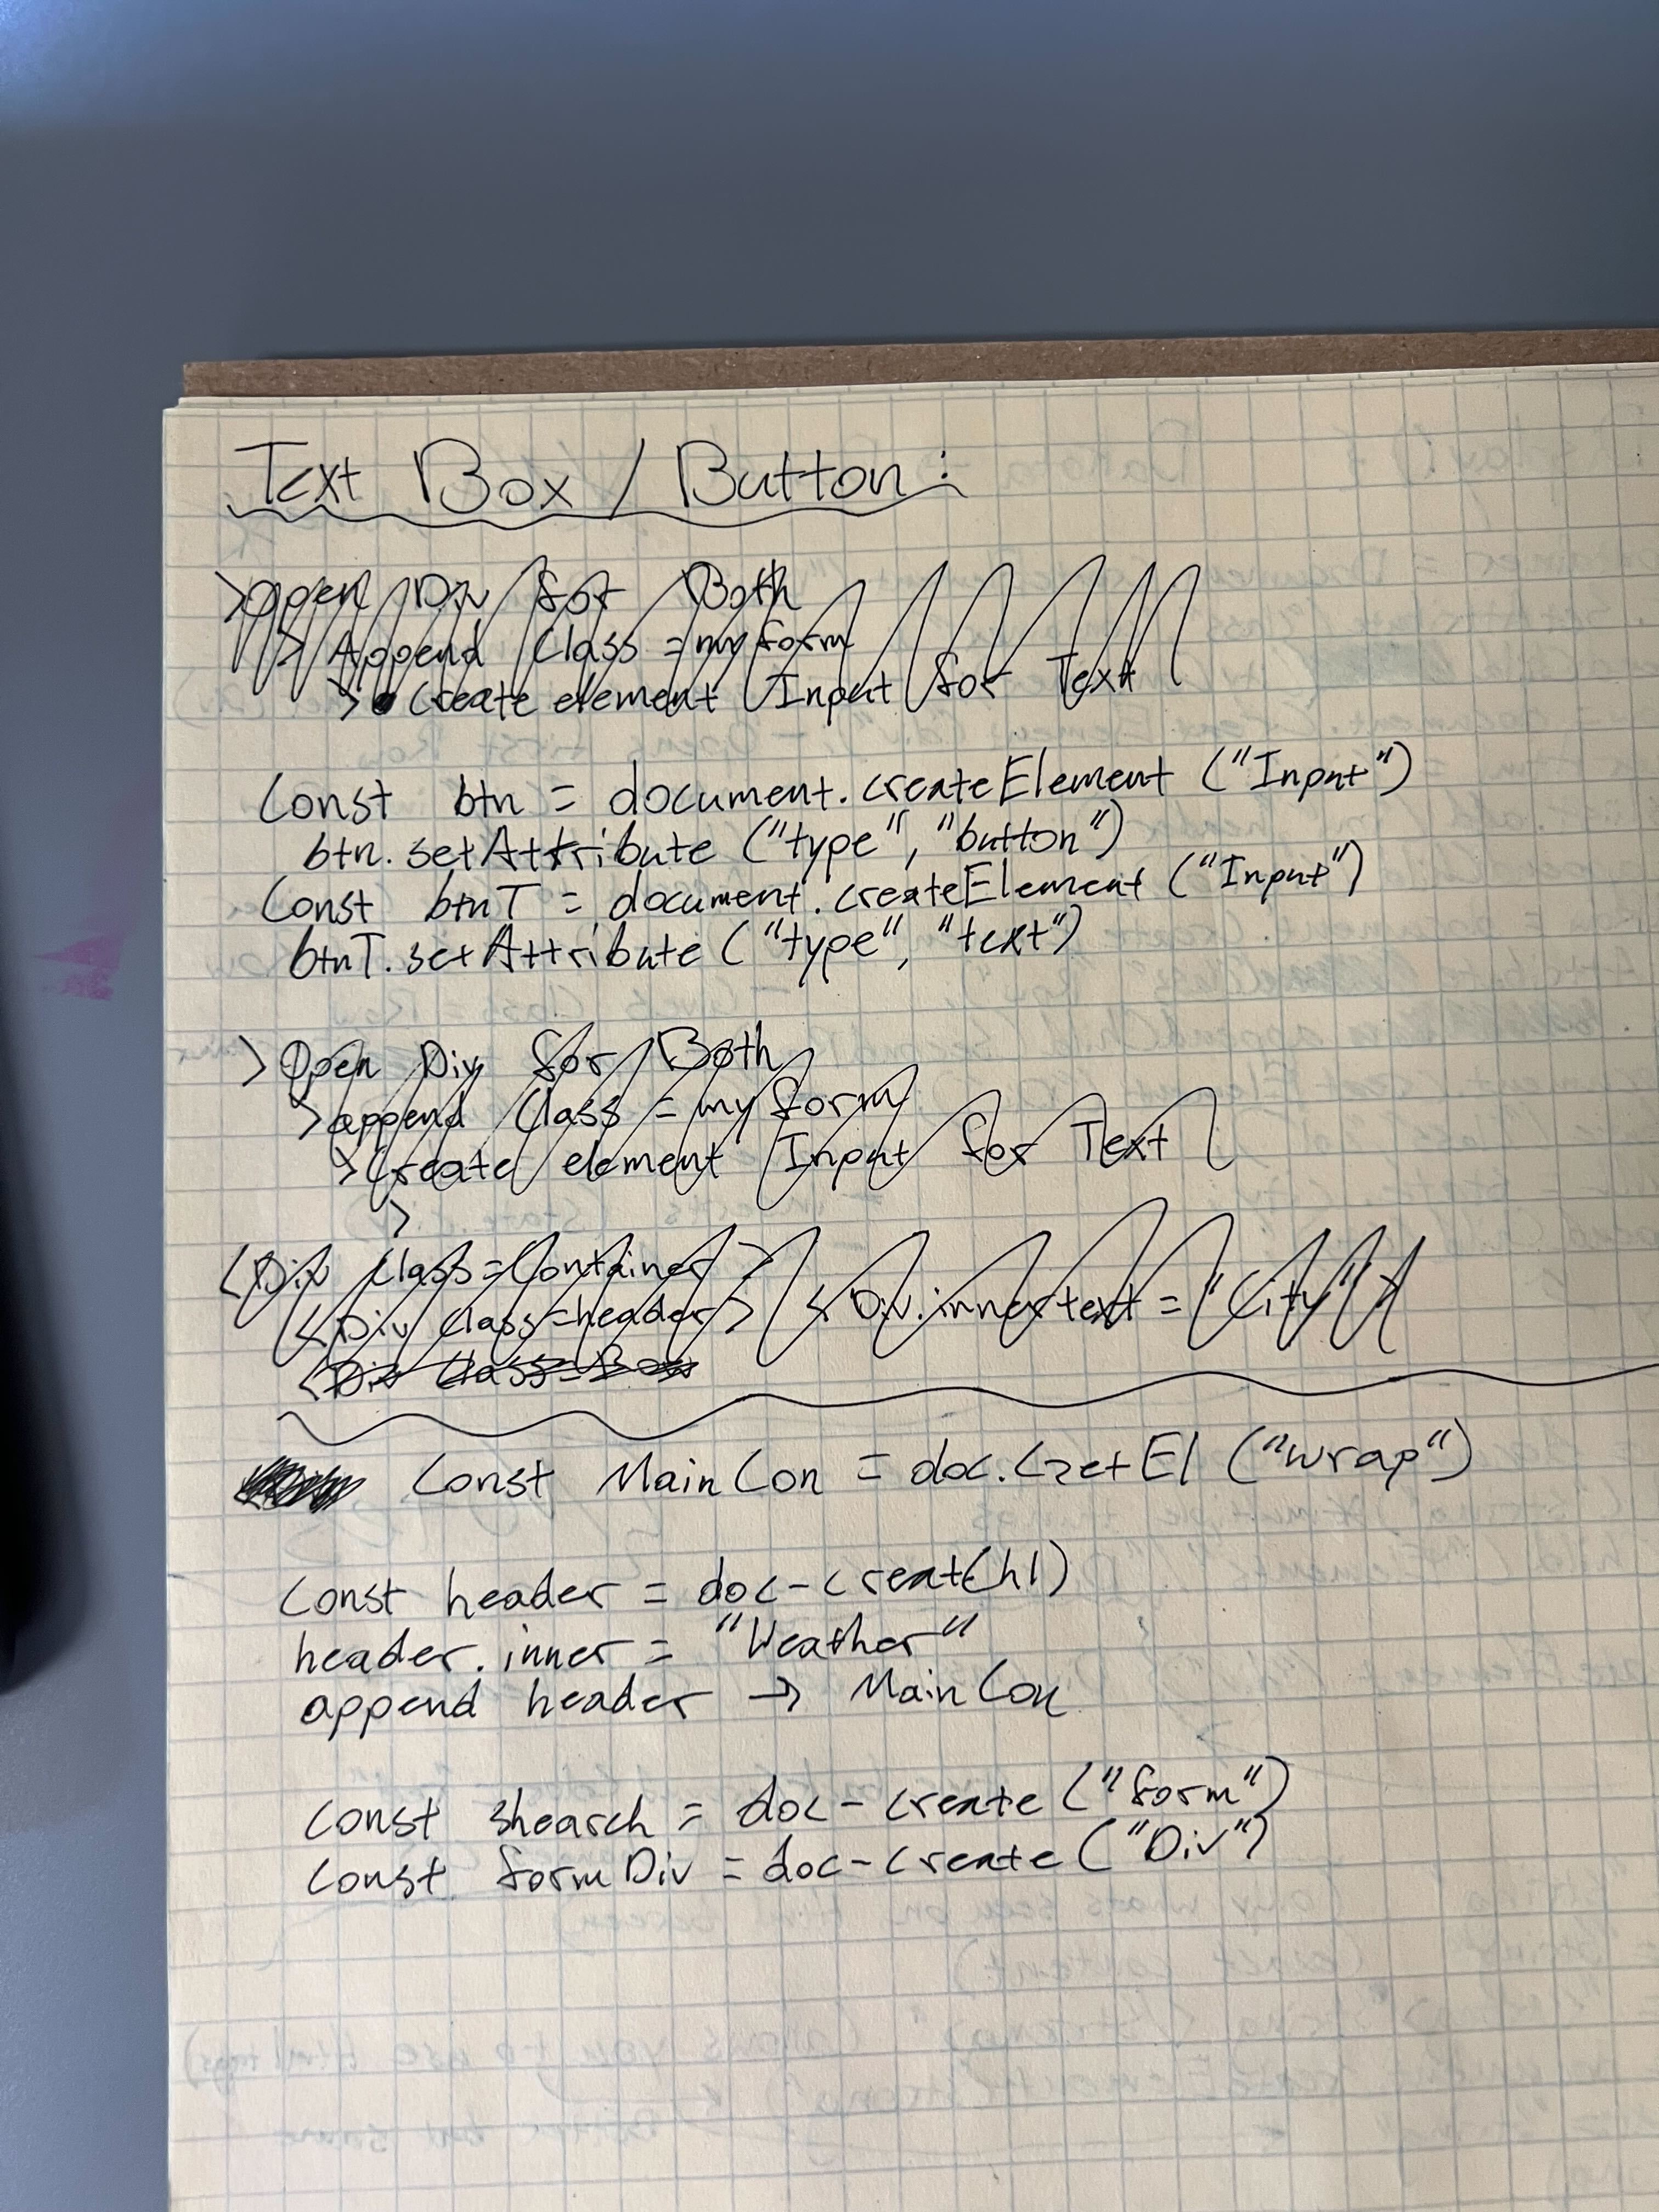 Text Box / Button:
>open Div for Both
> Append Class = my form
> Create element Input for Text
Const btn = document.createElement ("Input")
btn.setAttribute ("type", "button")
Const btnT = document.createElement ("Input")
btnT.setAttribute ("type", "text")
> Open Div for Both
>append Class = my form
>Create element Input for Text
>
<Div Class=Container>
<Div Class=header> < Div.innertext = "City">
<Div Class=Box
Const MainCon = doc.GetEl ("wrap")
Const header = doc-creat(h1)
header.inner = "Weather"
append header → MainCon
Const shearch = doc-create ("form")
Const formDiv = doc-create ("Div")